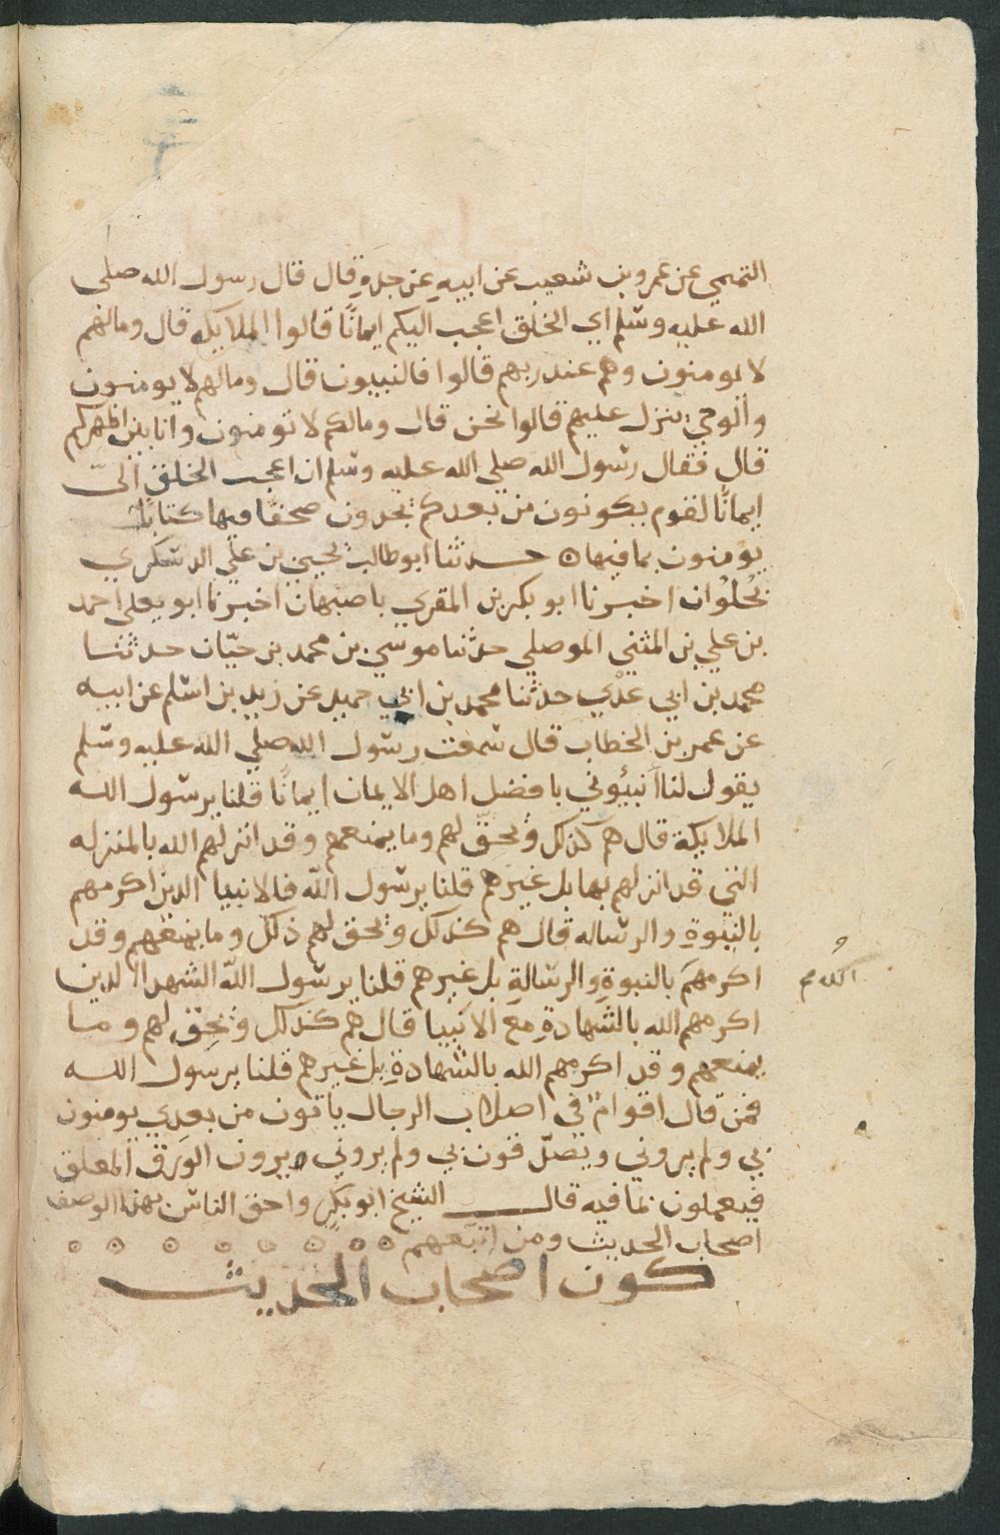 التميمي عن عمرو بن شعيب عن ابيهِ عن جدهِ قال قال رسول الله صلى
الله عليه وسلم اي الخلق اعجب اليكم ايمانًا قالوا الملايكه قال ومالهم
لا يومنون وهم عند ربهم قالوا فالنبيون قال ومالهم لا يومنون
والوحي ينزل عليهم قالوا نحن قال ومالكم لا تومنون وانا بين اظهركم
قال فقال رسول الله صلى الله عليه وسلم ان اعجب الخلق اليّ
ايمانًا لقوم يكونون من بعدكم يجدون صحفًا فيها كتابٌ
يومنون بما فيها ۞ حدثنا ابو طالب يحيى بن علي الدسكري
بحُلوان اخبرنا ابو بكر بن المقري باصبهان اخبرنا ابو يعلى احمد
بن علي بن المثنى الموصلي حدثنا موسى بن محمد بن حيّان حدثنا
محمد بن ابي عدي حدثنا محمد بن ابي حميد عن زيد بن اسلم عن ابيه
عن عمر بن الخطاب قال سمعت رسول الله صلى الله عليه وسلم
يقول لنا أنبيُوني بافضل اهل الايمان ايمانًا قلنا يرسول الله
الملايكة قال هم كذلك ويحق لهم وما يمنعهم وقد انزلهم الله بالمنزله
التي قد انزلهم بها بل غيرهم قلنا يرسول الله فالانبيا الذين اكرمهم
بالنبوةِ والرساله قال هم كذلك ويحق لهم ذلك وما يمنعهم وقد
اكرمهم بالنبوةِ والرسالةِ بل غيرهم قلنا يرسول الله الشهدا الذين
اكرمهم الله بالشهادةِ مع الانبيا قال هم كذلك ويحق لهم وما
يمنعهم وقد اكرمهم الله بالشهادةِ بل غيرهم قلنا يرسول الله
فمن قال اقوامٌ في اصلاب الرجال ياتون من بعدي يومنون
بي ولم يروني ويصدّقون بي ولم يروني يرون الوَرَق المعلق
فيعملون بما فيه قال الشيخ ابو بكر واحق الناس بهذا الوصف
اصحاب الحديث ومن اتبعهم
كون اصحاب الحديث